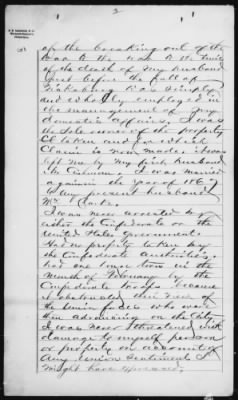 2
of the breaking out of the
war to the time
of the death of my husband
just before the fall of
Vicksburg I was simply
and wholly employed in
the management of my
domestic affairs, I was
the sole owner of the property
taken and for which
claim is now made. It was
left me by my first husband
Mr. I was married
again in the year of 1867
to my present husband
Mr Clarke.
I was never arrested by
either the Confederate or the
United States Government.
Had no property taken by
the Confederate Authorities.
had one house torn in the
month of by the
Confederate troops because
it obstructed their view of
the Union who were
then advancing on the City.
I was never threatened with
damage to myself person
or property on account of
any union sentiments I
might have